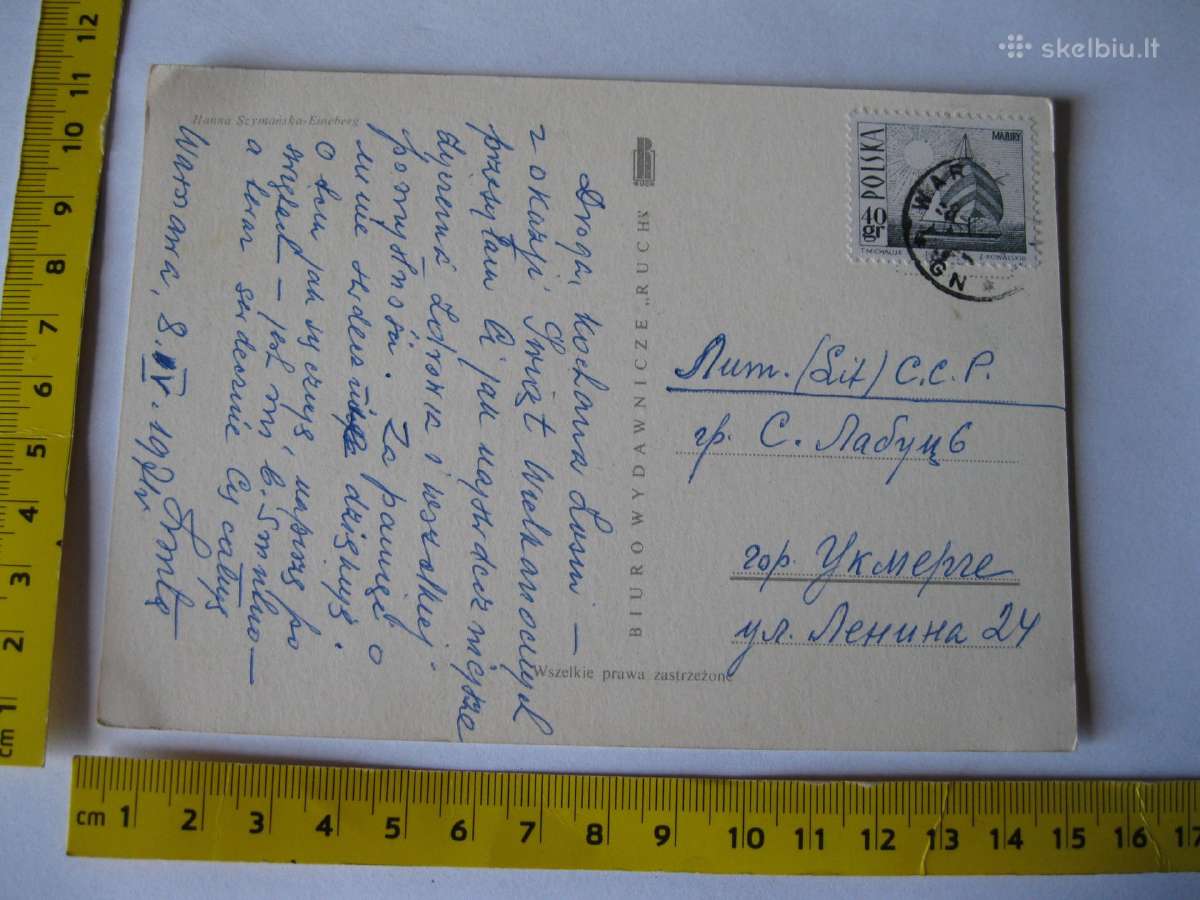 skelbiu.lt
Hanna Szymańska-Eineberg
Droga, kochana Lusiu —
z okazji Świąt Wielkanocnych
przesyłam Ci jak najserdeczniejsze
życzenia zdrowia i wszelkiej
pomyślności. Za pamięć o
mnie serdecznie dziękuję.
O tem jak się czujesz, napisz po
świętach — jest mi b. smutno —
a teraz serdecznie Cię całuję
Warszawa, 8.IV.
RUCH
BIURO WYDAWNICZE „RUCH"
Wszelkie prawa zastrzeżone
POLSKA
MAZURY
40 gr
WAR
Лит. (Lit) С.С.Р.
гр. С. Лабуць
гор. Укмерге
ул. Ленина 24
cm 1 2 3 4 5 6 7 8 9 10 11 12
cm 1 2 3 4 5 6 7 8 9 10 11 12 13 14 15 16 17